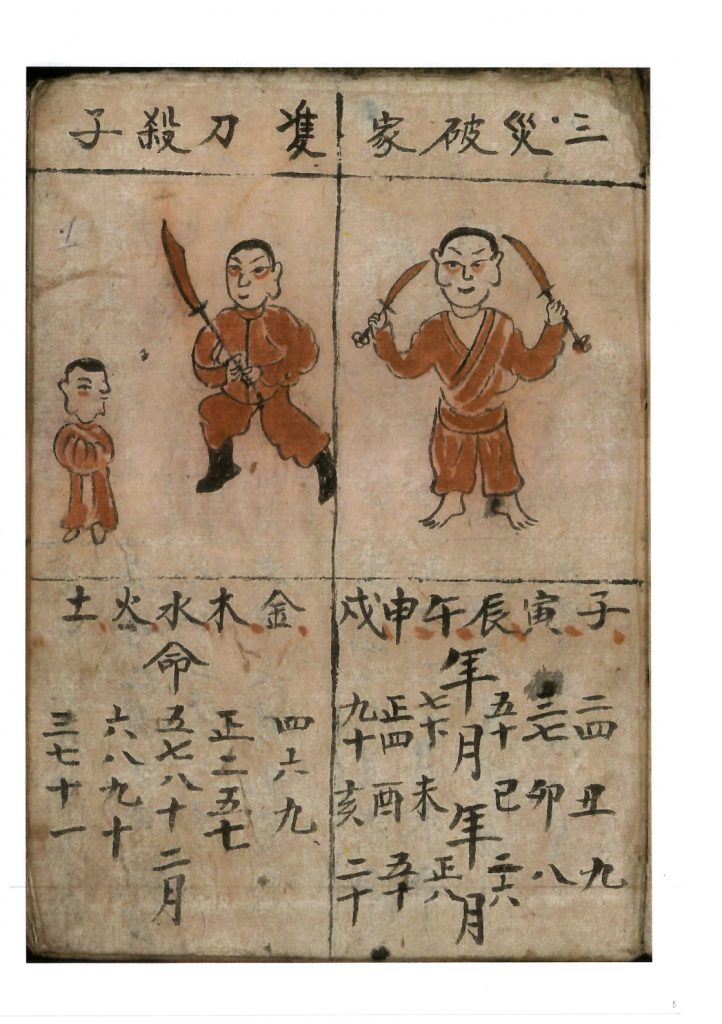 三災破家
子寅辰午申戌
年
二四 三七 五十 正四 九十
月
丑卯巳未酉亥
年
九 八 二六 正八 五十 二十
月
隻刀殺子
金木水火土
命
四六九
正二五七
五七八十二月
六八九十
三七十一
5